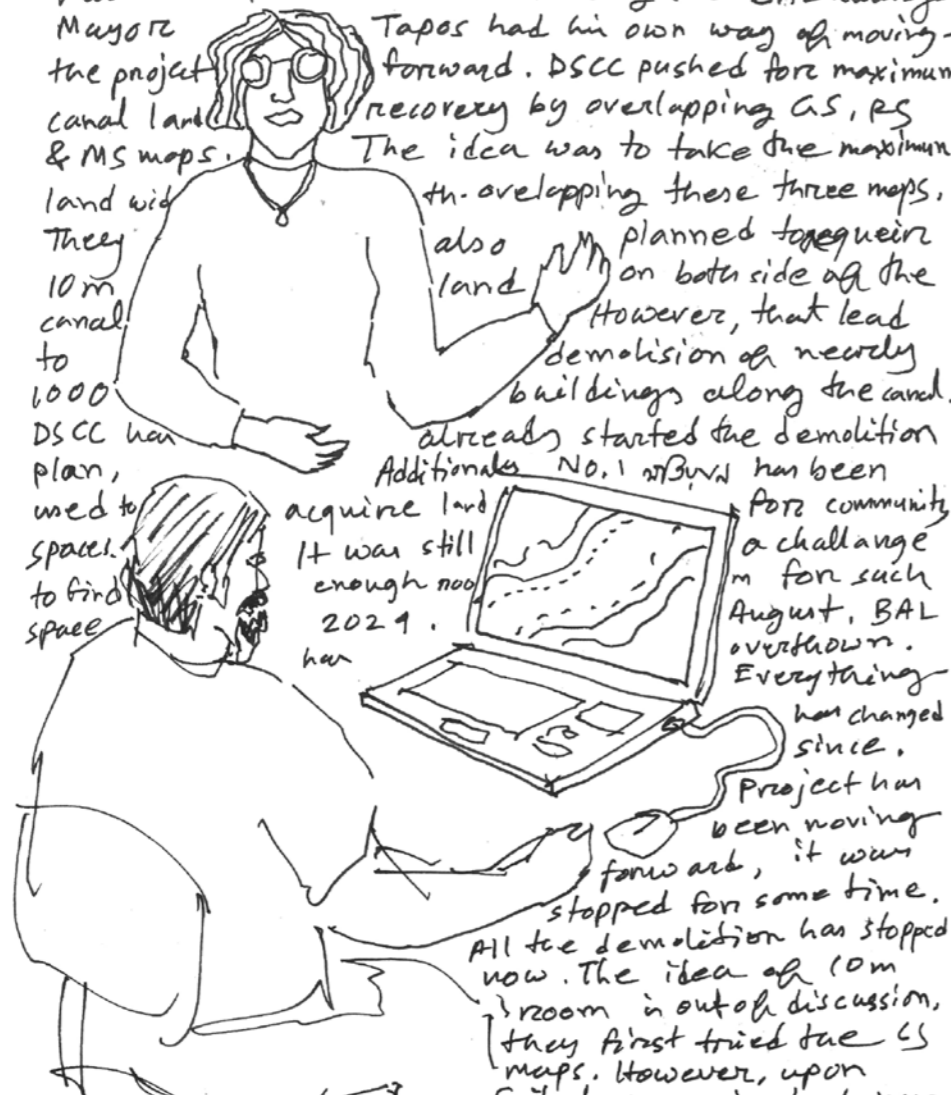 Mayor Tapos had his own way of moving
the project forward. DSCC pushed for maximum
canal land recovery by overlapping CS, RS
& MS maps. The idea was to take the maximum
land wid th. overlapping these three maps.
They also planned to
10m land on both side of the
canal. However, that lead
to demolision of nearly
1000 buildings along the canal.
DSCC has already started the demolition
plan, Additionaly No. 1 has been
used to acquire land for community
spaces. It was still a challange
to find enough roo m for such
space 2024. August, BAL
has overthown.
Everything
has changed
since.
Project has
been moving
forward, it was
stopped for some time.
All the demolition has stopped
now. The idea of 10m
room is out of discussion,
they first tried the CS
maps. However, upon